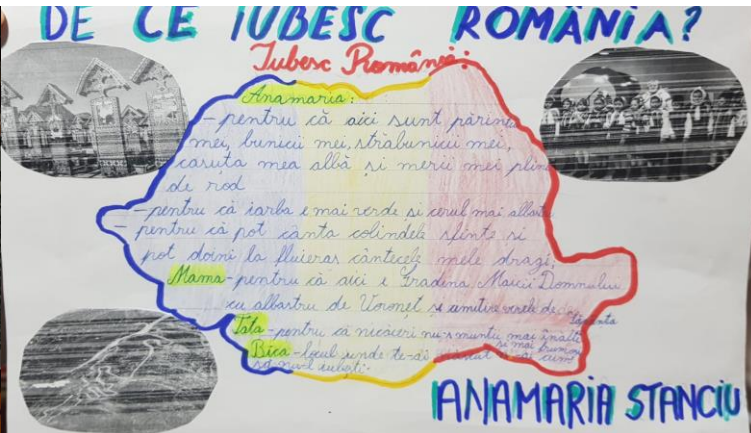 DE CE IUBESC ROMÂNIA?
Iubesc România:
Anamaria:
- pentru că aici sunt părinții
mei, bunicii mei, străbunicii mei,
căsuța mea albă și merii mei plini
de rod
- pentru că iarba e mai verde și cerul mai albastru
- pentru că pot cânta colindele sfinte și
pot doini la fluieras cântecele mele dragi.
Mama - pentru că aici e Grădina Maicii Domnului
cu albastru de Voroneț și
Tata - pentru că nicăieri nu-s munții mai înalți
și mai frumoși
Bica - locul unde te-ai născut
să nu-l iubești.
ANAMARIA STANCIU